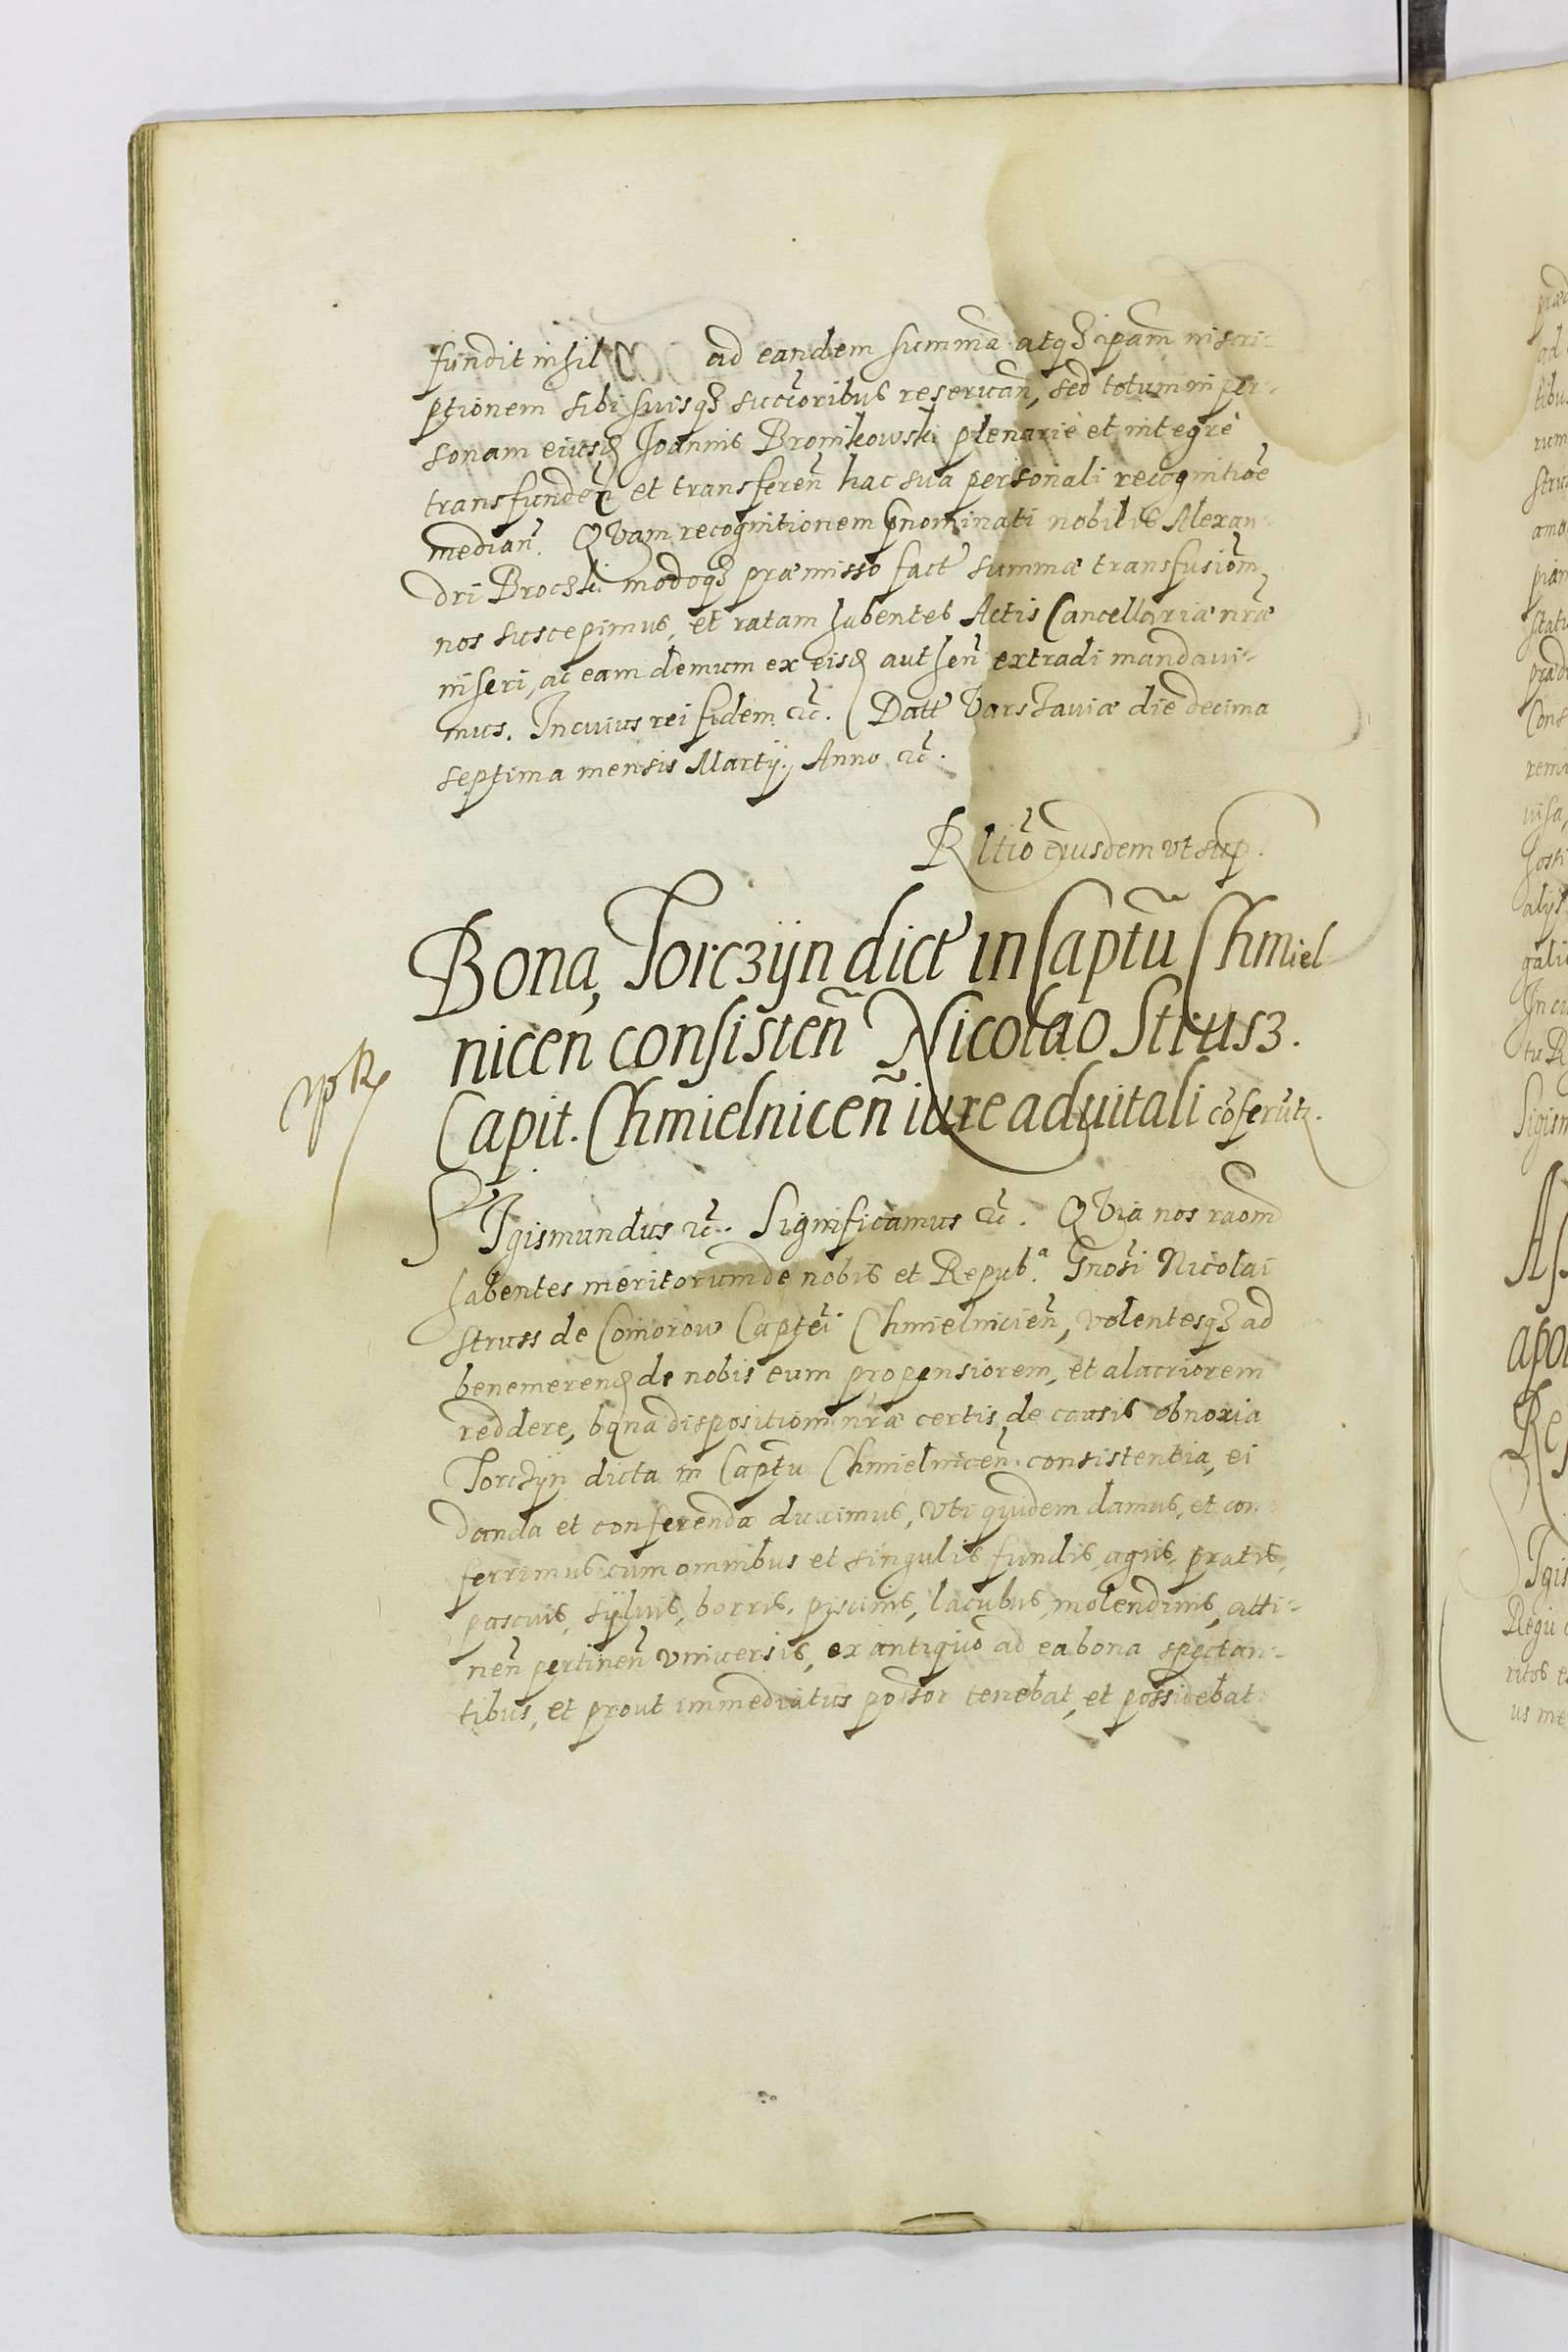 fundit nihil ad eandem summã atq₃ ipam inscri-
ptionem sibi suisq₃ succõribus reseruan̄, sed totum in per-
sonam eiusd Joannis Bronikowski plenariè et integrè
transfunden̄ et transferen̄ hac sua personali recognitiõe
median̄. QVam recognitionem pnominati nobilis Alexan-
dri Brochski modoq₃ præmisso fact summæ transfusiõm
nos suscepimus, et ratam habentes Actis Cancellariæ nrãe
inseri, ac eam demum ex eisd authen̄ extradi mandaui-
mus. In cuius rei fidem &c̃. Datt Varsҙauiæ die decima
septima mensis Martij. Anno &c̃.
Rltiõ eiusdem vt sup.
Bona, Torcзijn dict in Captũ Chmiel-
nicen̄ consisten̄ Nicolao Strusз.
Capit. Chmielnicen̄ iure aduitali cõferũtz.
SIgismundus &c̃. Significamus &c̃. QVia nos raõm
habentes meritorum de nobis et Repub.ᵃ Gnõsi Nicolai
Struss de Comorow Captẽi Chmielnicien̄, volentesq₃ ad
benemerend de nobis eum propensiorem, et alacriorem
reddere, bona dispositiõni nrãe certis de causis obnoxia
Torcзijn dicta in Captũ Chmielnicen̄ consistentia, ei
danda et conferenda duximus, Vti quidem damus, et con-
ferrimus cum omnibus et singulis fundis, agris, pratis,
pascuis, sÿluis, borris, piscinis, lacubus, molendinis, atti-
nen̄ pertinen̄ vniuersis, ex antiquõ ad ea bona spectan-
tibus, et prout immediatus põssor tenebat, et possidebat